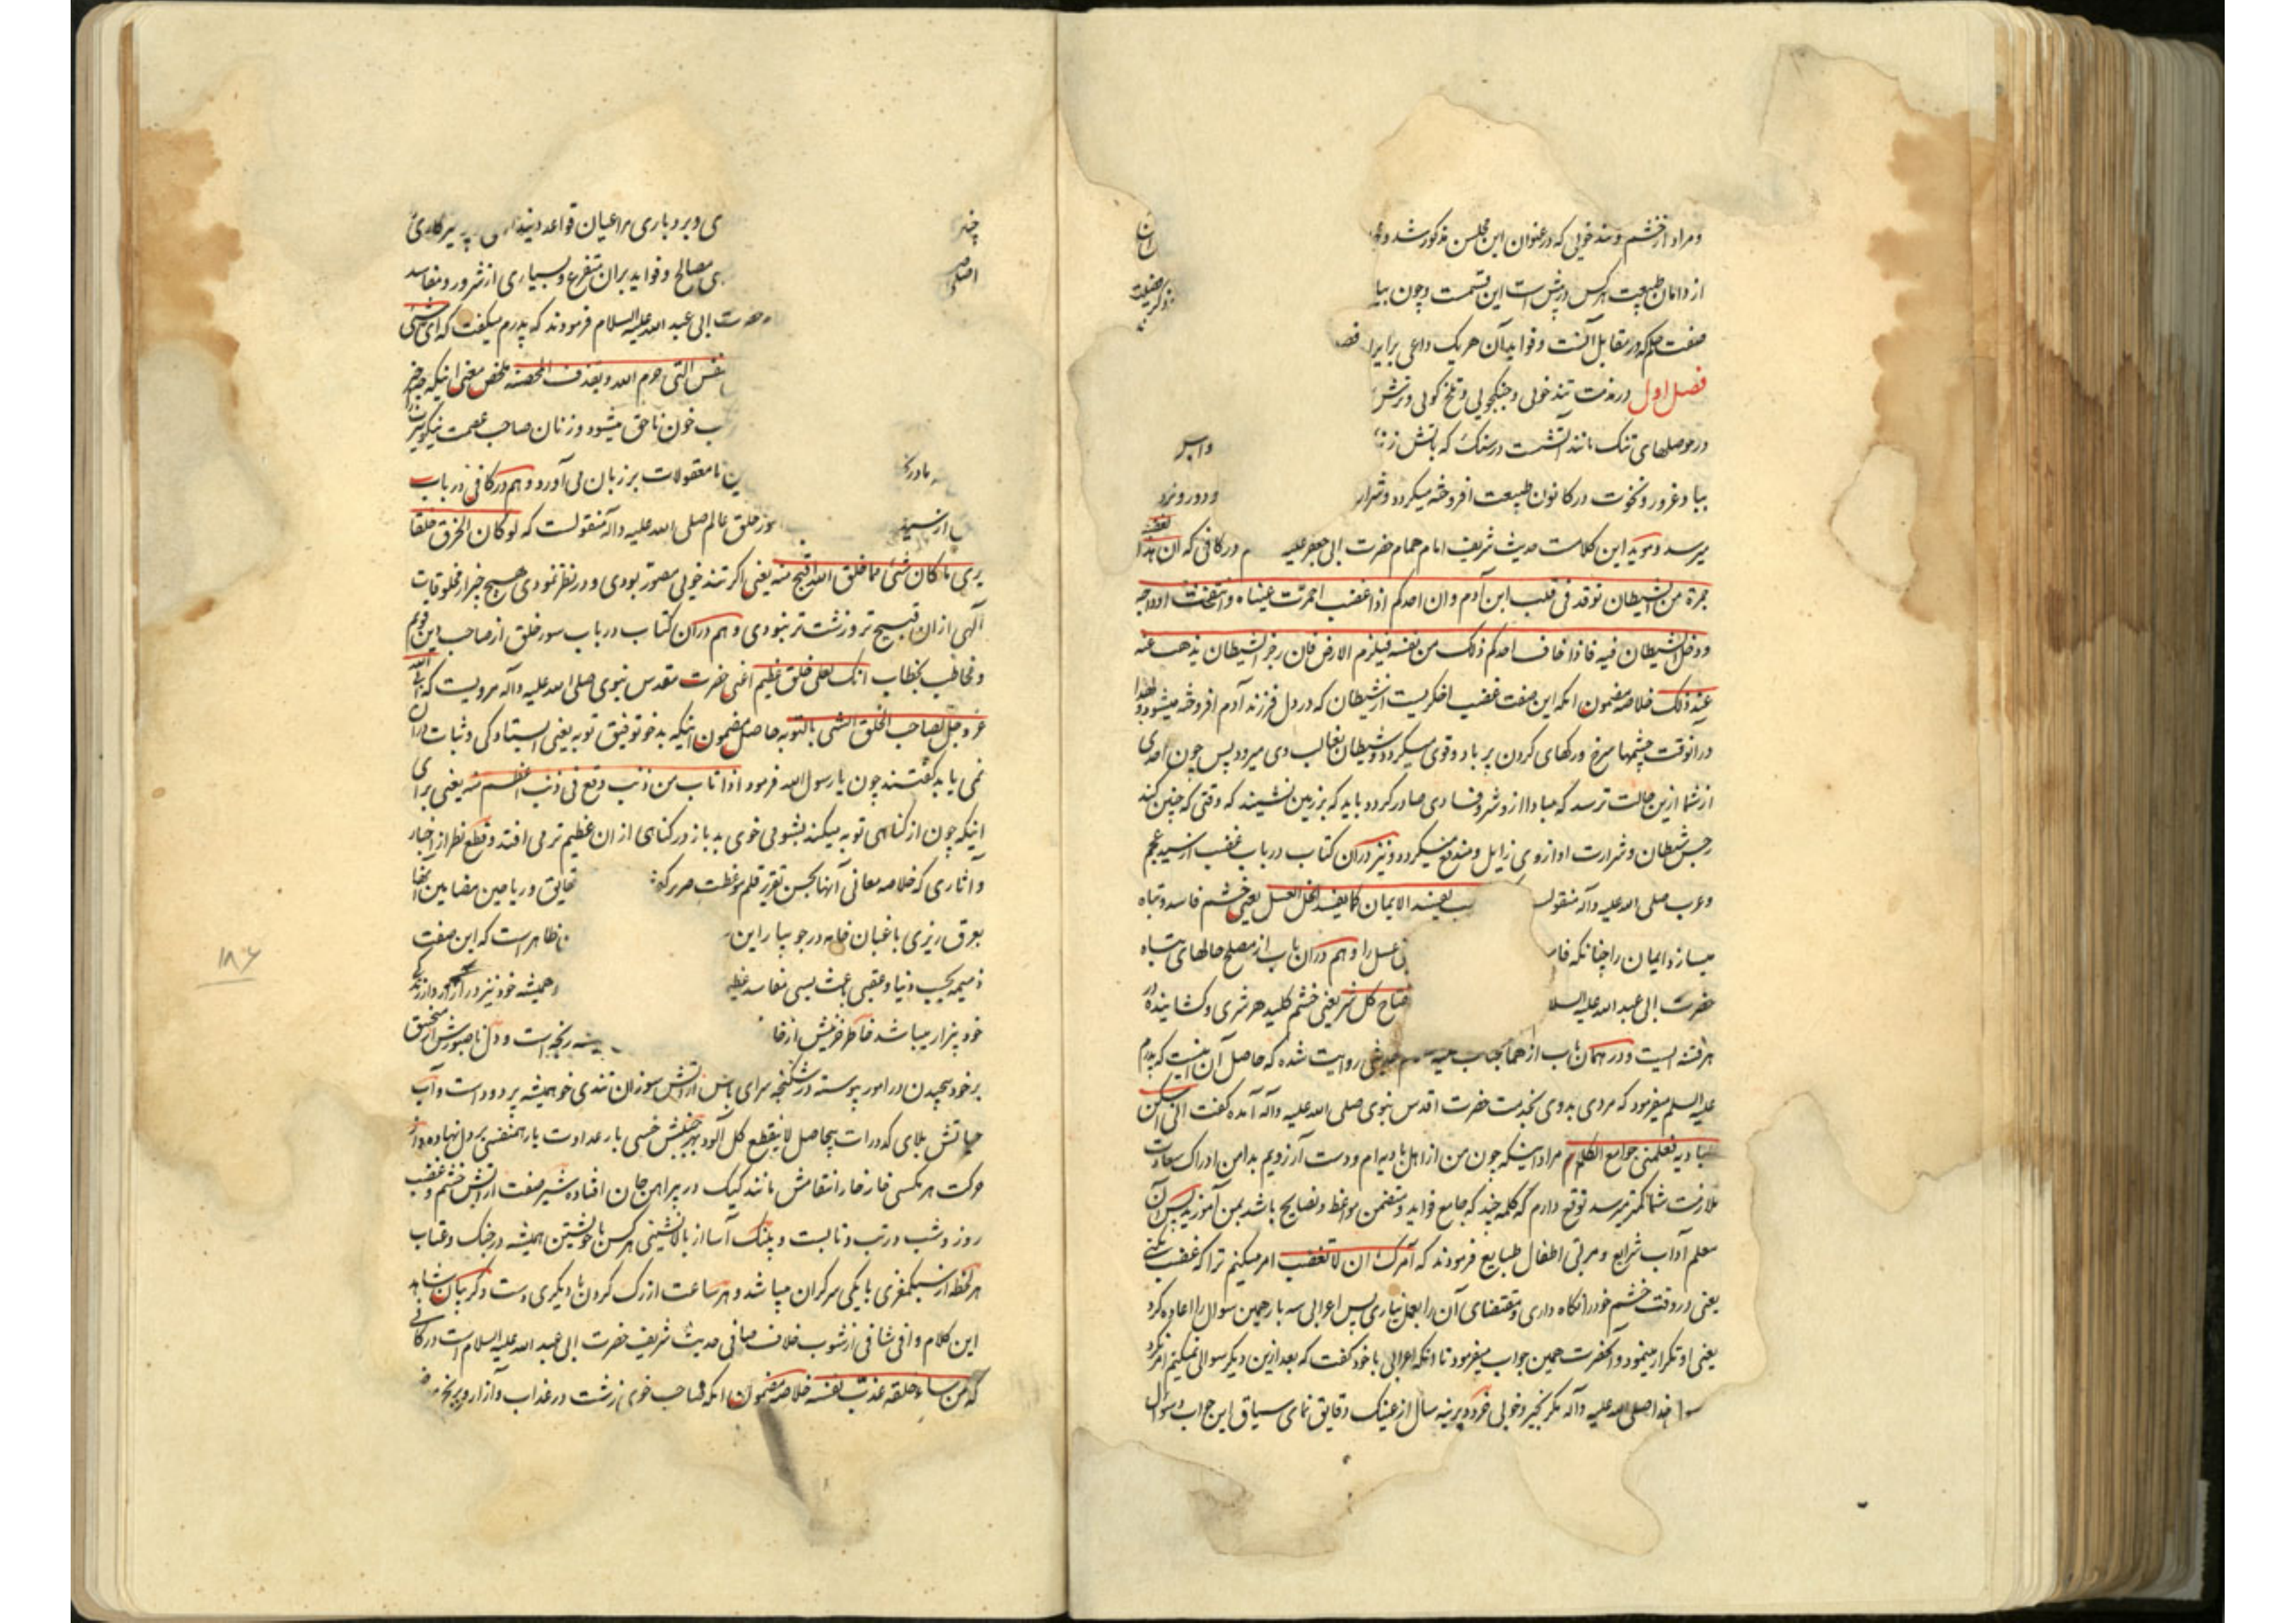 و مراد از خشم و تند خویی که در عنوان این مجلس مذکور شد و
از دامان طبیعت هر کس در پیش است این قسمت و چون بیا
صفت حلم که در مقابل آنست و فواید آن هر یک داعی برایرا فصـ
فصل اول در مذمت تند خویی و جنگجویی و تلخ گویی و ترش
در موصلهای تنک مانند آتشست در سنک که باتش زنـ واسـ
بباد غرور و نخوت در کانون طبیعت افروخته میکردد و شرار و دور و نزد
میرسد و موید این کلامست حدیث شریف امام همام حضرت ابی جعفر علیه م در کافی که ان هذا الغضب
جمرة من الشیطان توقد فی قلب ابن آدم و ان احدکم اذا غضب احمرت عیناه و انتفخت اوداجه
و دخل الشیطان فیه فاذا خاف احدکم ذلک من نفسه فیلزم الارض فان رجز الشیطان یذهب عنه
عند ذلک خلاصه مضمون انکه این صفت غضب اخکریست از شیطان که در دل فرزند آدم افروخته میشود لهذا
در آنوقت چشمها سرخ و رکهای کردن پر باد و قوی میکردد و شیطان بغالب وی میرود پس چون احدی
از شما ازین حالت ترسد که مبادا ازو شر و فسادی صادر کردد باید که بر زمین نشیند که وقتی که چنین کند
رجس شیطان و شرارت او ازوی زایل و مندفع میکردد و نیز در آن کتاب در باب غضب از سید عجم
و عرب صلی الله علیه و آله منقولسـ ـب یفسد الایمان کما یفسد الخل العسل یعنی خشم فاسد و تباه
میسازد ایمان را چنانکه فا عسل را و هم در آن باب از مصلح حالهای تباه
حضرت ابی عبد الله علیه السلا ـفتاح کل شر یعنی خشم کلید هر شری و کشاینده در
هر فتنه ایست و در همان باب از همان جناب علیه م حدیثی روایت شده که حاصل آن اینست که پدرم
علیه السلم میفرمود که مردی بدوی بخدمت حضرت اقدس نبوی صلی الله علیه و آله آمده کفت انی اسکن
البادیه فعلمنی جوامع الکلام مراد اینکه چون من از اهل بادیه ام و دست آرزویم بدامن ادراک سعادت
ملازمت شما کمتر میرسد توقع دارم که کلمه چند که جامع فواید و متضمن مواعظ و نصایح باشد بمن آموزید پس آن
معلم آداب شرایع و مربی اطفال طبایع فرمودند که آمرک ان لا تغضب امر میکنم ترا که غضب نکنی
یعنی در وقت خشم خود را نکاه داری و مقتضای آن را بعمل نیاری پس اعرابی سه بار همین سوال را اعاده کرد
یعنی او تکرار مینمود و آنحضرت همین جواب میفرمود تا آنکه اعرابی با خود کفت که بعد ازین دیکر سوالی نمیکنم
خدا صلی الله علیه و آله مکر بخیر و خوبی خرد دیرینه سال از عینک دقایق نمای سیاق این جواب و سوال
ی و بردباری مراعیان قواعد
ی مصالح و فواید بران متفرع و بسیاری از شرور و مفاسد
حضرت ابی عبد الله علیه السلام فرمودند که پدرم میکفت که ای شی
ـنفس التی حرم الله و یقذف المحصنه ملخص معنی اینکه چه چیز
ـب خون ناحق میشود و زنان صاحب عصمت نیکو سیرت را
ـین نامعقولات بر زبان می آورد و هم در کافی در باب
از سید حلق عالم صلی الله علیه و آله منقولست که لو کان الخرق خلقا
یری ما کان شئ مما خلق الله اقبح منه یعنی اکر تند خویی مصور بودی و در نظر نمودی هیچ چیز از مخلوقات
آلهی ازان قبیح تر و زشت تر نبودی و هم در آن کتاب در باب سوء خلق از صاحب دین قویم
و مخاطب بخطاب انک لعلی خلق عظیم اعنی حضرت مقدس نبوی صلی الله علیه و آله مرویست که ابی الله
عز و جل لصاحب الخلق السئ بالتوبه حاصل مضمون اینکه بدخو توفیق توبه یعنی ایستادکی و ثبات دران
نمی یابد کفتند چون یا رسول الله فرمود اذا تاب من ذنب وقع فی ذنب اعظم منه یعنی برای
اینکه چون از کناهی توبه میکند بشومی خوی بد باز در کناهی از ان عظیم تر می افتد و قطع نظر از اخبار
و آثاری که خلاصه معانی آنها بحسن تقریر قلم موعظت صریر حقایق و ریاحین مضامین آنها
بعرق ریزی باغبان خامه در جویبار این ظاهر است که این صفت
ذمیمه بحسب دنیا و عقبی باعث بسی مفاسد عظیـ همیشه خود نیز در آزار و از زندکی
خود بیزار میباشد خاطر حزینش از خا ـینه رنجه است و دل ناصبورش از منجنیق
بر خود پیچیدن در امور پیوسته در شکنجه سرای از آتش سوزان تندی خو همیشه پر دود است و آب
حیاتش بلای کدورات بیحاصل لا ینقطع کل آلود بهر خسی بار عداوت یار همنفسی بر دل نهاده و از
حرکت هر مکسی خار خار انتقامش مانند کیک در پیراهن جان افتاده شیر صفت از آتش خشم و غضب
روز و شب در تب و تابست و پلنک آسا از بالانشینی هر کس با خویشتن همیشه در جنک و عتاب
هر لحظه از سبکمغزی با یکی سرکران میباشد و هر ساعت از رک کردن با دیکری دست و کریبان شاهد
این کلام وافی شافی از شوب خلاف صافی حدیث شریف حضرت ابی عبد الله علیه السلام است در کافی
که من ساء خلقه عذب نفسه خلاصه مضمون انکه صاحب خوی زشت در عذاب و آزار
۱۸۶